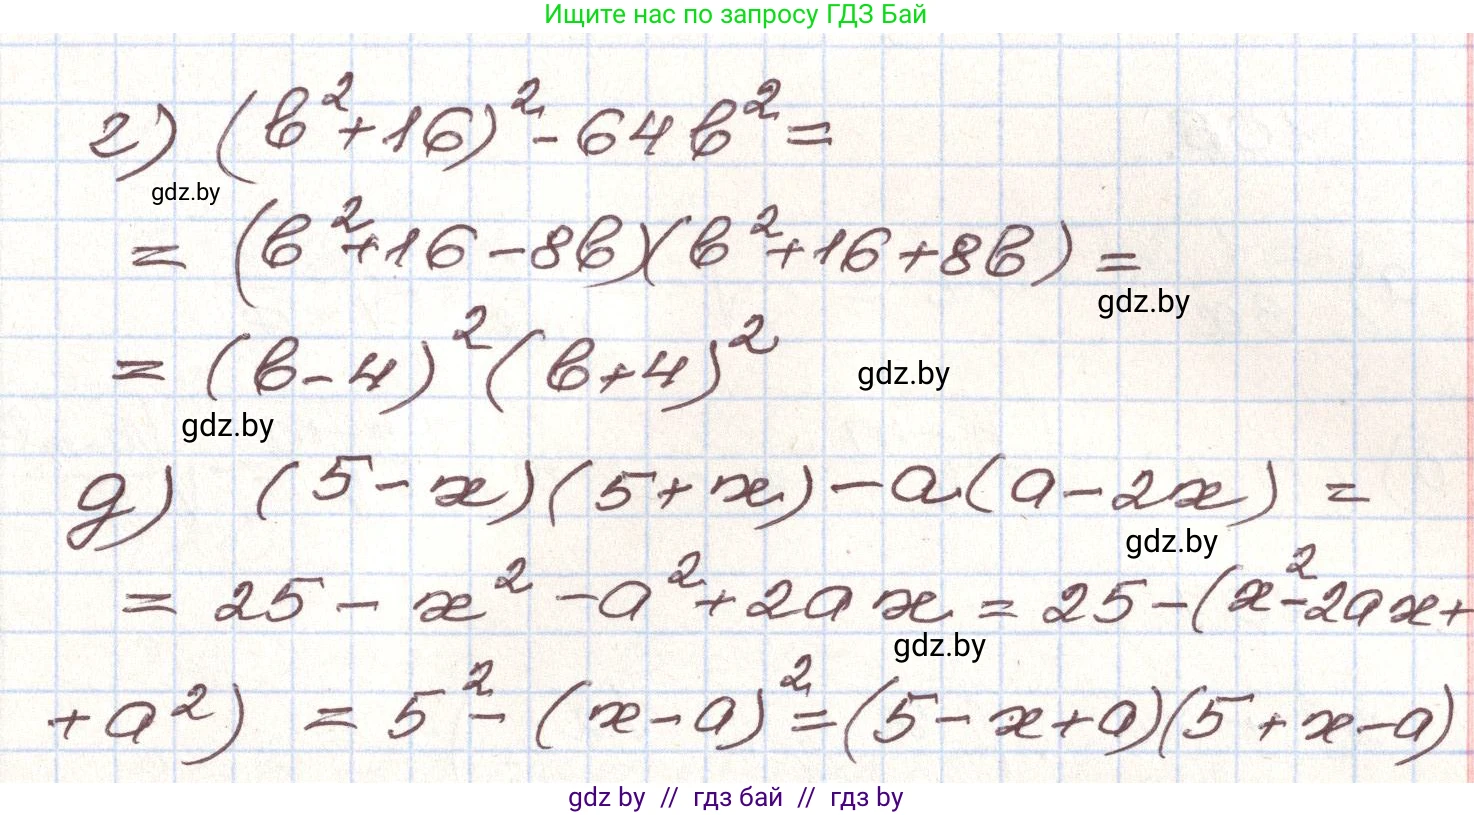 Ищите нас по запросу ГДЗ Бай
г) (b²+16)²-64b²=
gdz.by
= (b²+16-8b)(b²+16+8b) =
gdz.by
= (b-4)²(b+4)²
gdz.by
gdz.by
д) (5-x)(5+x)-a(a-2x) =
gdz.by
= 25-x²-a²+2ax = 25-(x²-2ax+
gdz.by
+a²) = 5²-(x-a)²=(5-x+a)(5+x-a)
gdz by // гдз бай // гдз by